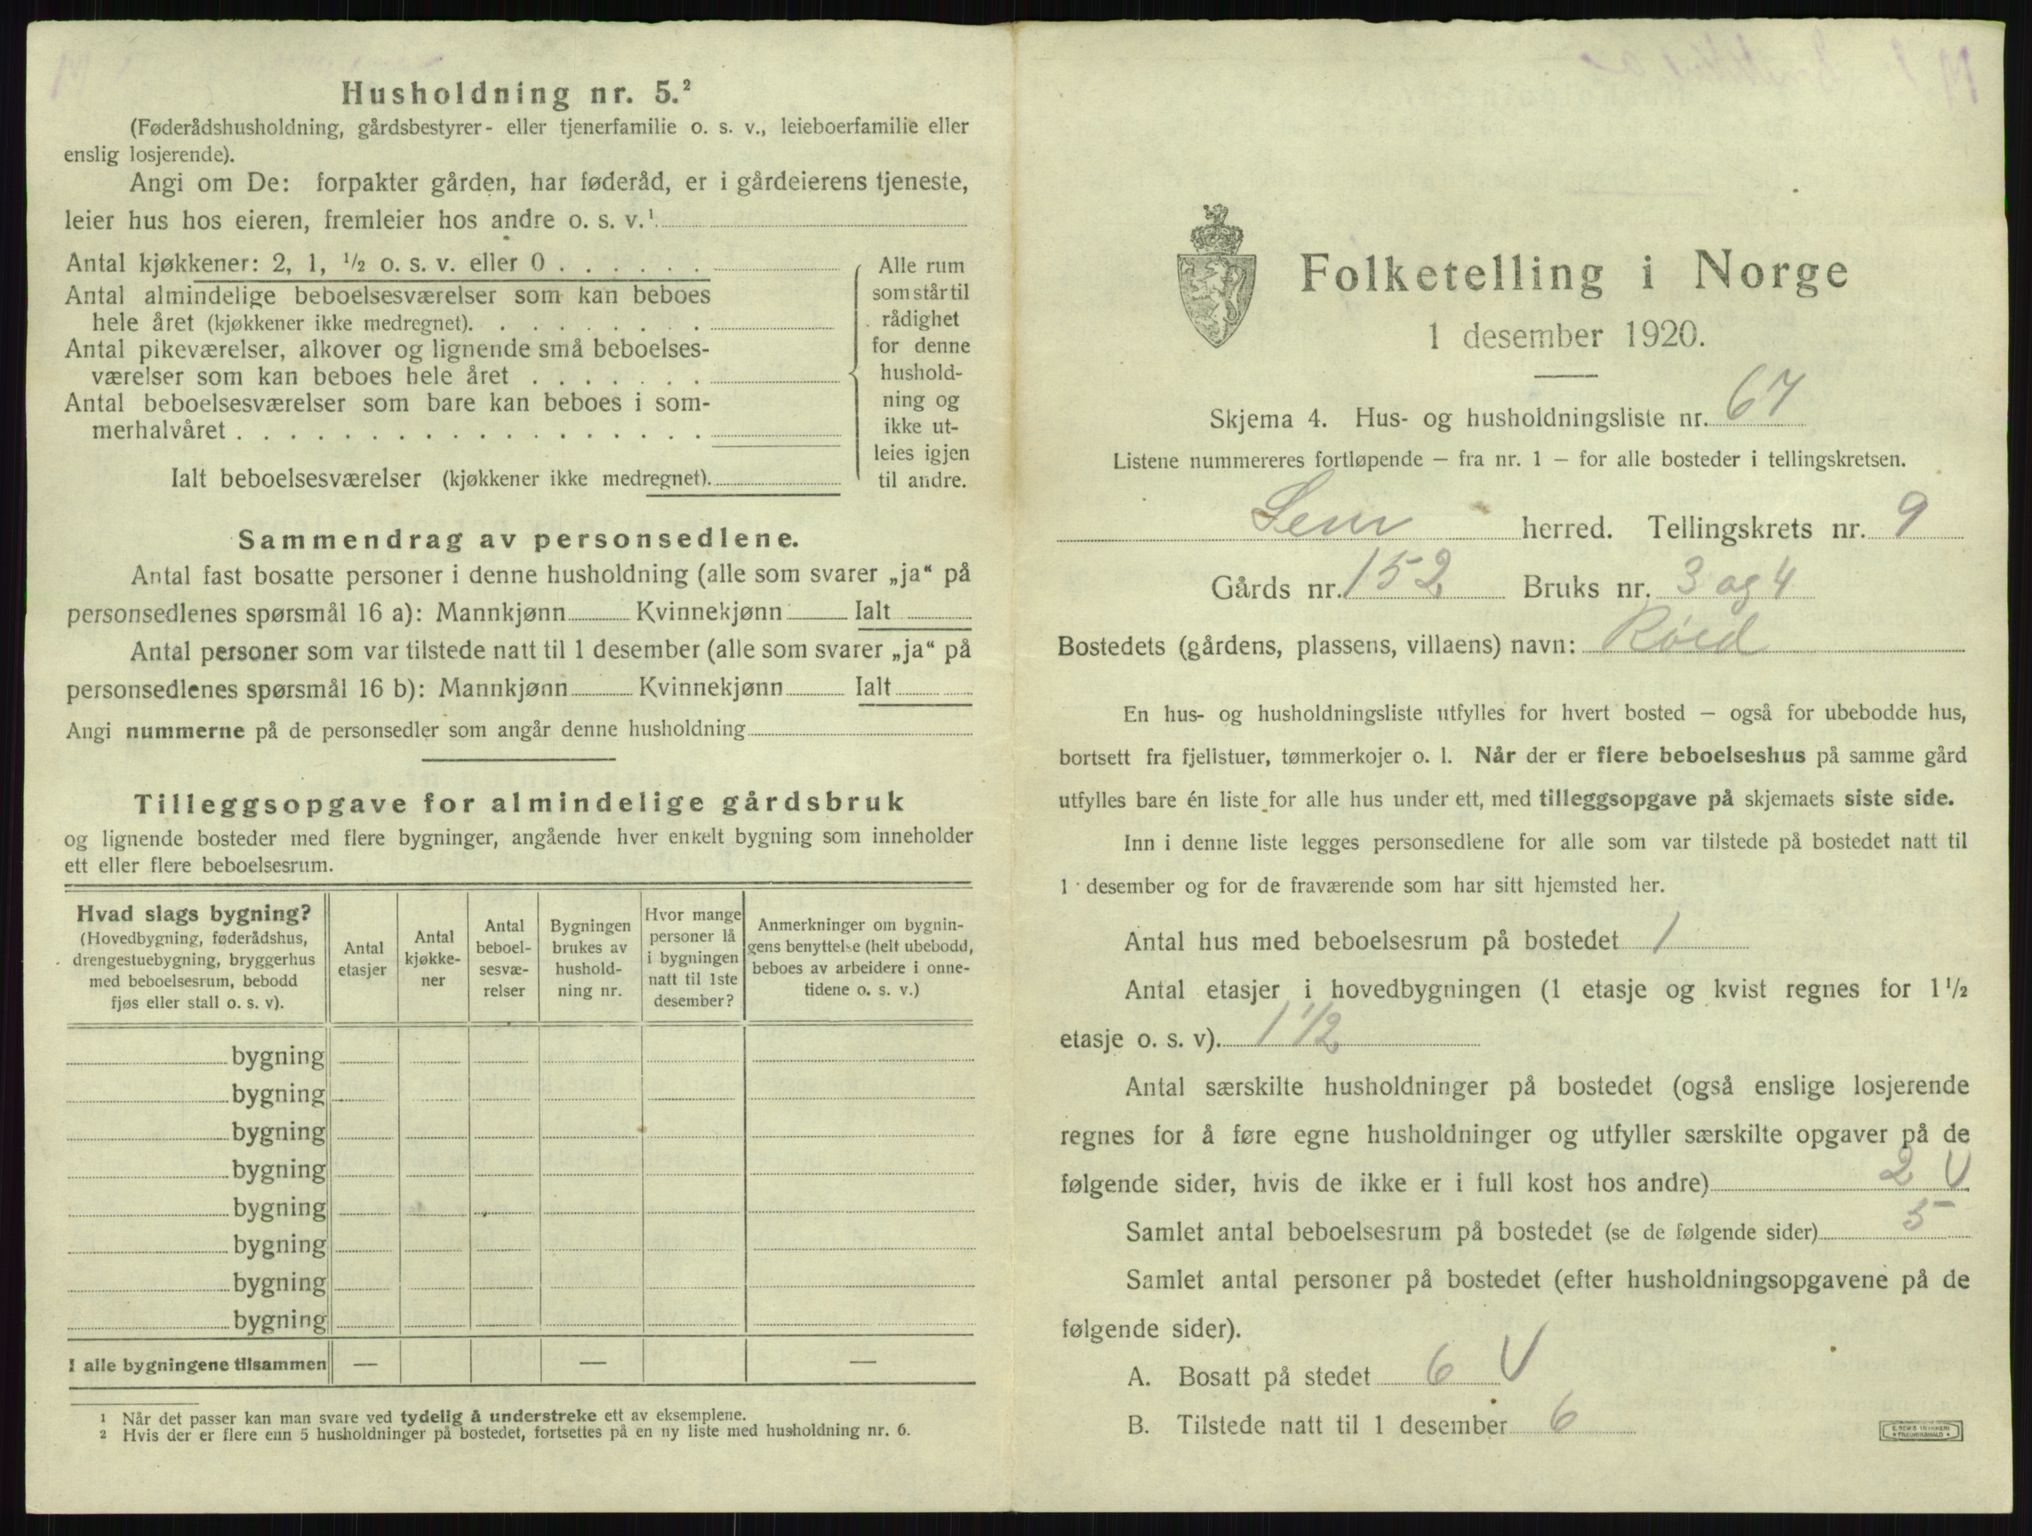 Husholdning nr. 5.²
(Føderådshusholdning, gårdsbestyrer- eller tjenerfamilie o. s. v., leieboerfamilie eller
enslig losjerende).
Angi om De: forpakter gården, har føderåd, er i gårdeierens tjeneste,
leier hus hos eieren, fremleier hos andre o. s. v.¹
Antal kjøkkener: 2, 1, ½ o. s. v. eller 0 . . . . . .
Antal almindelige beboelsesværelser som kan beboes
hele året (kjøkkener ikke medregnet). . . . . . . . .
Antal pikeværelser, alkover og lignende små beboelses-
værelser som kan beboes hele året . . . . . . .
Antal beboelsesværelser som bare kan beboes i som-
merhalvåret . . . . . . . . . . . . . . . . . .
Ialt beboelsesværelser (kjøkkener ikke medregnet).
Alle rum
som står til
rådighet
for denne
hushold-
ning og
ikke ut-
leies igjen
til andre.
Sammendrag av personsedlene.
Antal fast bosatte personer i denne husholdning (alle som svarer „ja“ på
personsedlenes spørsmål 16 a): Mannkjønn Kvinnekjønn Ialt
Antal personer som var tilstede natt til 1 desember (alle som svarer „ja“ på
personsedlenes spørsmål 16 b): Mannkjønn Kvinnekjønn Ialt
Angi nummerne på de personsedler som angår denne husholdning
Tilleggsopgave for almindelige gårdsbruk
og lignende bosteder med flere bygninger, angående hver enkelt bygning som inneholder
ett eller flere beboelsesrum.
Hvad slags bygning?
(Hovedbygning, føderådshus,
drengestuebygning, bryggerhus
med beboelsesrum, bebodd
fjøs eller stall o. s. v).
Antal
etasjer
Antal
kjøkke-
ner
Antal
beboel-
sesvæ-
relser
Bygningen
brukes av
hushold-
ning nr.
Hvor mange
personer lå
i bygningen
natt til 1ste
desember?
Anmerkninger om bygnin-
gens benyttelse (helt ubebodd,
beboes av arbeidere i onne-
tidene o. s. v.)
bygning
bygning
bygning
bygning
bygning
bygning
bygning
bygning
I alle bygningene tilsammen — — —
1 Når det passer kan man svare ved tydelig å understreke ett av eksemplene.
2 Hvis der er flere enn 5 husholdninger på bostedet, fortsettes på en ny liste med husholdning nr. 6.
Folketelling i Norge
1 desember 1920.
Skjema 4. Hus- og husholdningsliste nr. 67
Listene nummereres fortløpende – fra nr. 1 – for alle bosteder i tellingskretsen.
Sem herred. Tellingskrets nr. 9
Gårds nr. 152 Bruks nr. 3 og 4
Bostedets (gårdens, plassens, villaens) navn: Røed
En hus- og husholdningsliste utfylles for hvert bosted – også for ubebodde hus,
bortsett fra fjellstuer, tømmerkojer o. l. Når der er flere beboelseshus på samme gård
utfylles bare én liste for alle hus under ett, med tilleggsopgave på skjemaets siste side.
Inn i denne liste legges personsedlene for alle som var tilstede på bostedet natt til
1 desember og for de fraværende som har sitt hjemsted her.
Antal hus med beboelsesrum på bostedet 1
Antal etasjer i hovedbygningen (1 etasje og kvist regnes for 1½
etasje o. s. v). 1 1/2
Antal særskilte husholdninger på bostedet (også enslige losjerende
regnes for å føre egne husholdninger og utfyller særskilte opgaver på de
følgende sider, hvis de ikke er i full kost hos andre) 2 V
Samlet antal beboelsesrum på bostedet (se de følgende sider) 5
Samlet antal personer på bostedet (efter husholdningsopgavene på de
følgende sider).
A. Bosatt på stedet 6 V
B. Tilstede natt til 1 desember 6